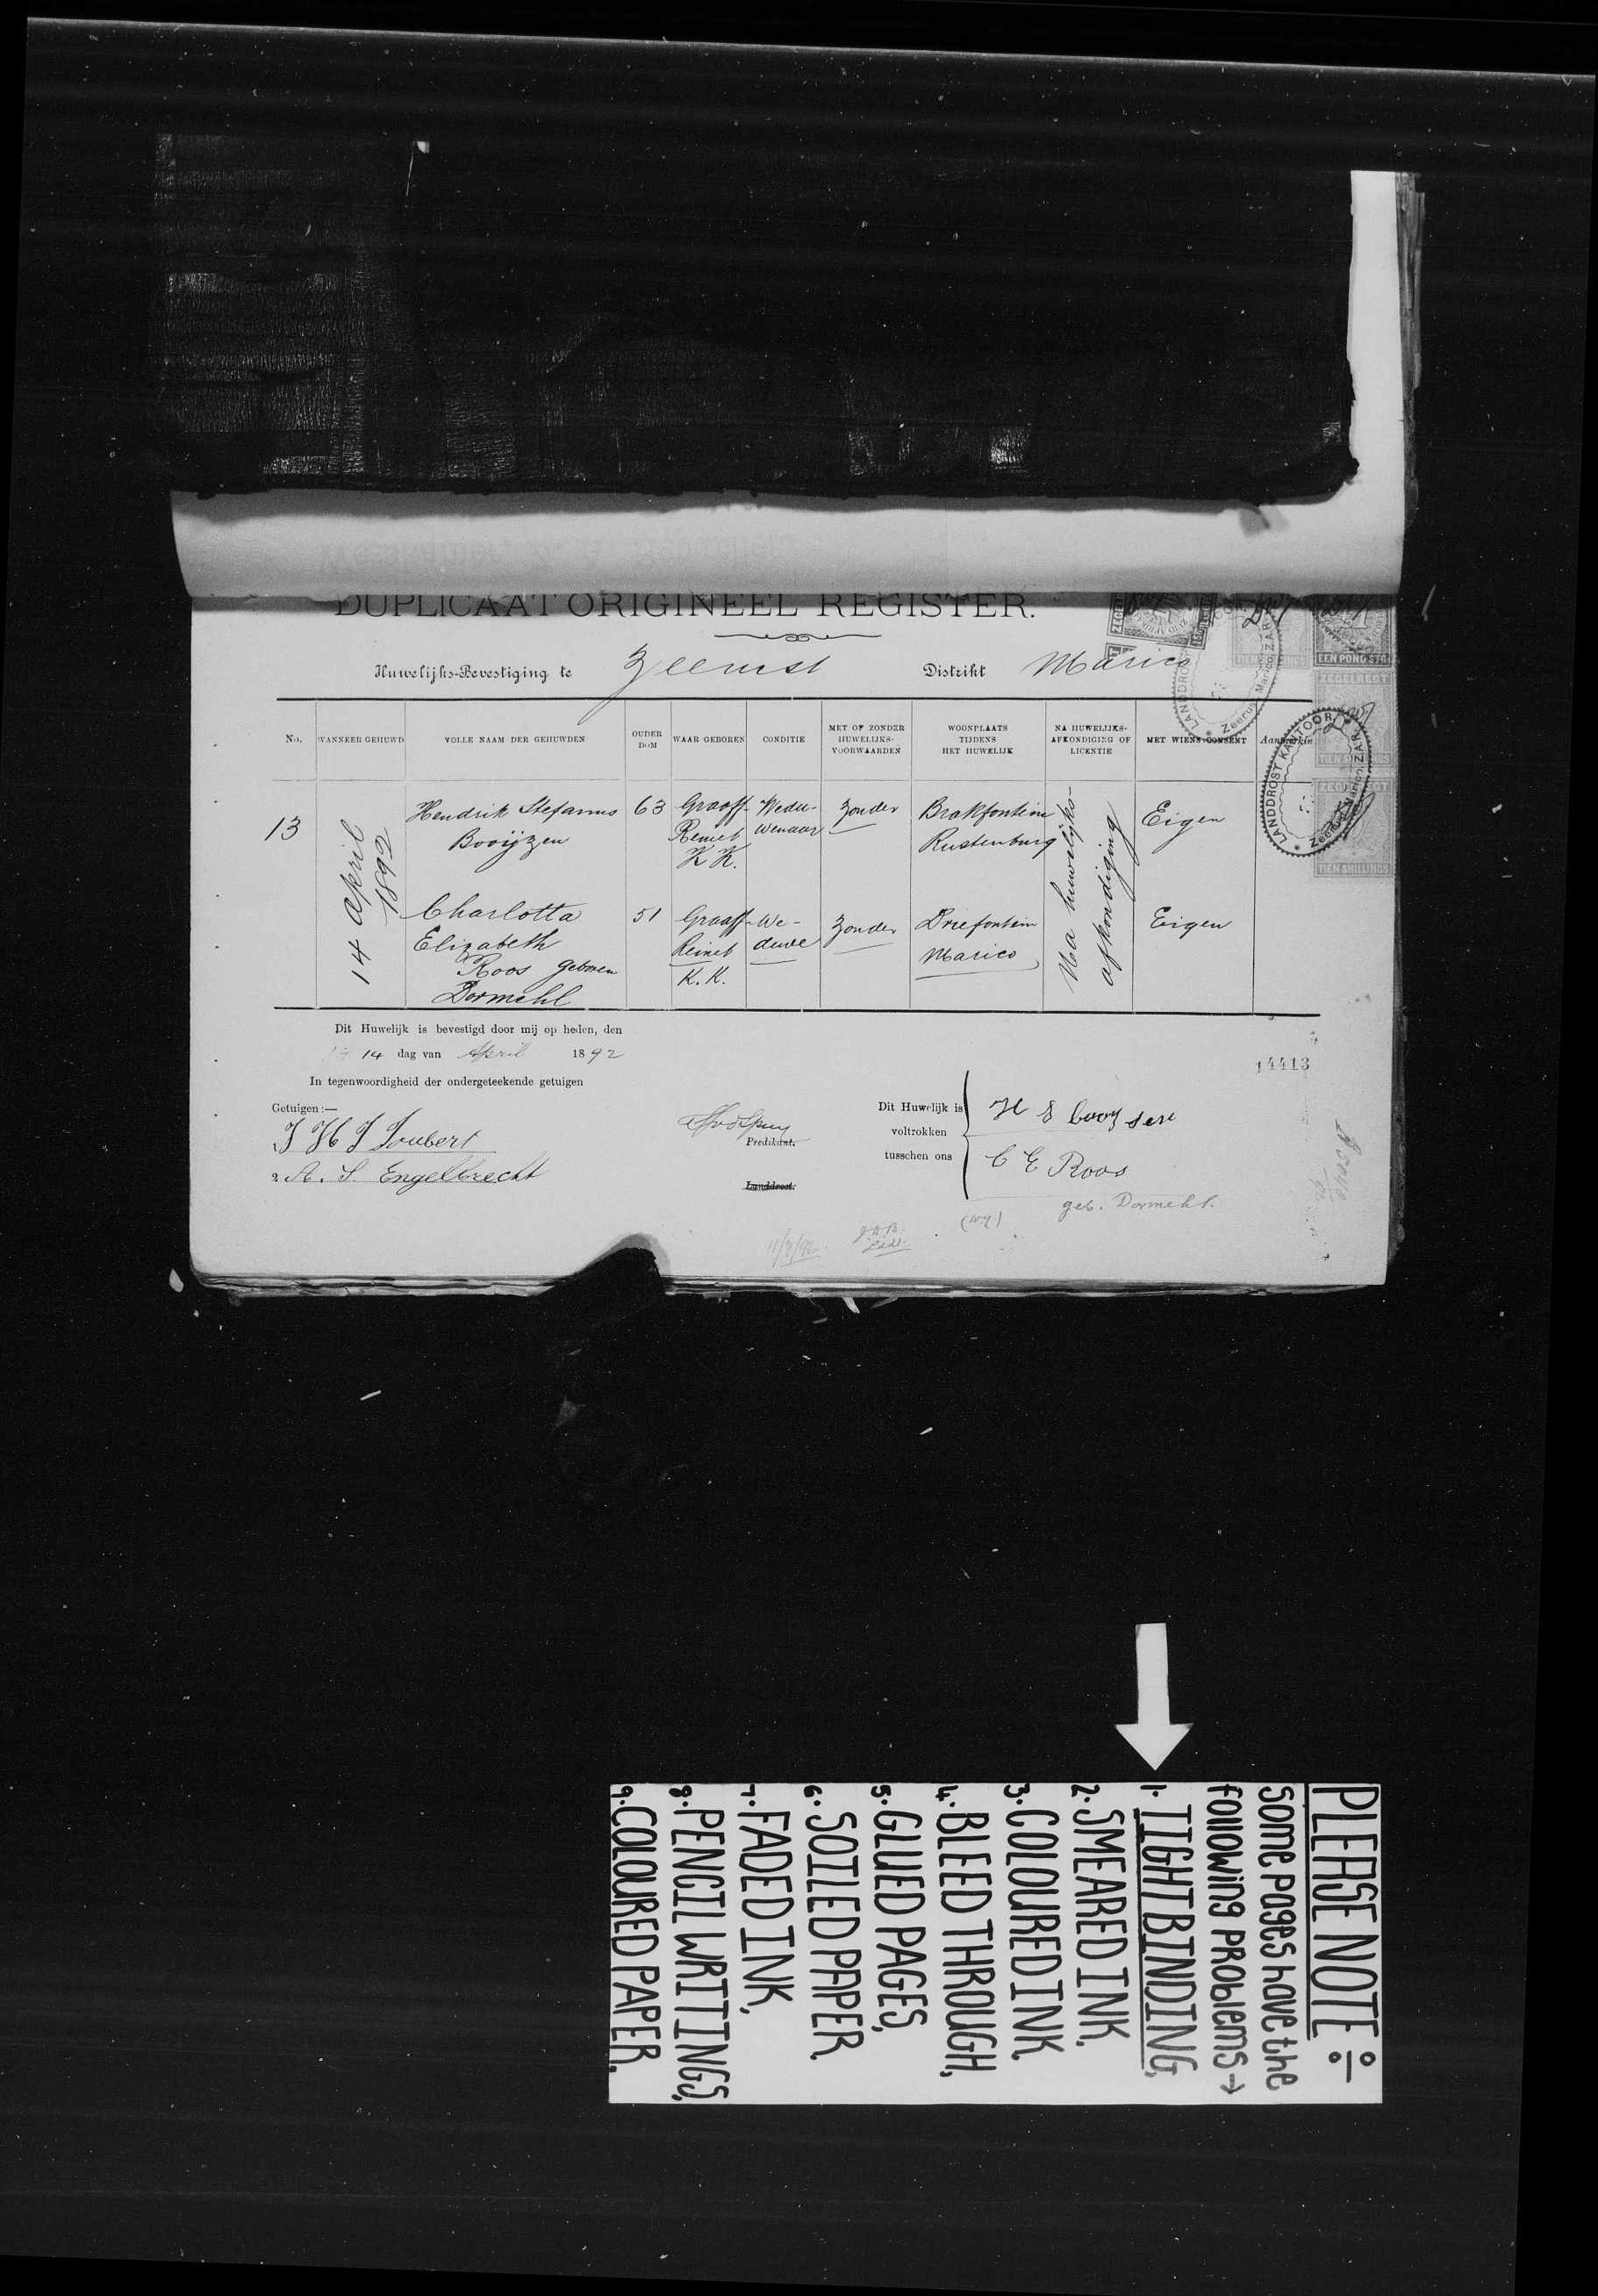 DUPLICAAT ORIGINEEL REGISTER.
Huwelijks-Bevestiging te Zeerust Distrikt Marico
No. WANNEER GEHUWD VOLLE NAAM DER GEHUWDEN OUDER DOM WAAR GEBOREN CONDITIE MET OF ZONDER HUWELIJKS-VOORWAARDEN WOONPLAATS TIJDENS HET HUWELIJK NA HUWELIJKS-AFKONDIGING OF LICENTIE MET WIENS CONSENT
13
14 April
1892
Hendrik Stefanus
Booijzen
63
Graaff-
Reinet
K K.
Wedu-
wenaar
Zonder
Brakfontein
Rustenburg
Na huwelijks-
afkondiging
Eigen
Charlotta
Elizabeth
Roos geboren
Dormehl
51
Graaff-
Reinet
K. K.
We-
duwe
Zonder
Driefontein
Marico
Eigen
LANDDROST KANTOOR
Zeerust Marico ZAR
EEN POND STG
ZEGELREGT
TIEN SHILLINGS
Dit Huwelijk is bevestigd door mij op heden, den
14 dag van April 1892
In tegenwoordigheid der ondergeteekende getuigen
14413
Getuigen:—
J H J Joubert
2 A. S. Engelbrecht
Predikant.
Landdrost.
Dit Huwelijk is
voltrokken
tusschen ons
H S booysen
C E Roos
geb. Dormehl.
PLEASE NOTE :-
some pages have the
following problems →
1. TIGHT BINDING,
2. SMEARED INK,
3. COLOURED INK,
4. BLEED THROUGH,
5. GLUED PAGES,
6. SOILED PAPER,
7. FADED INK,
8. PENCIL WRITINGS,
9. COLOURED PAPER.